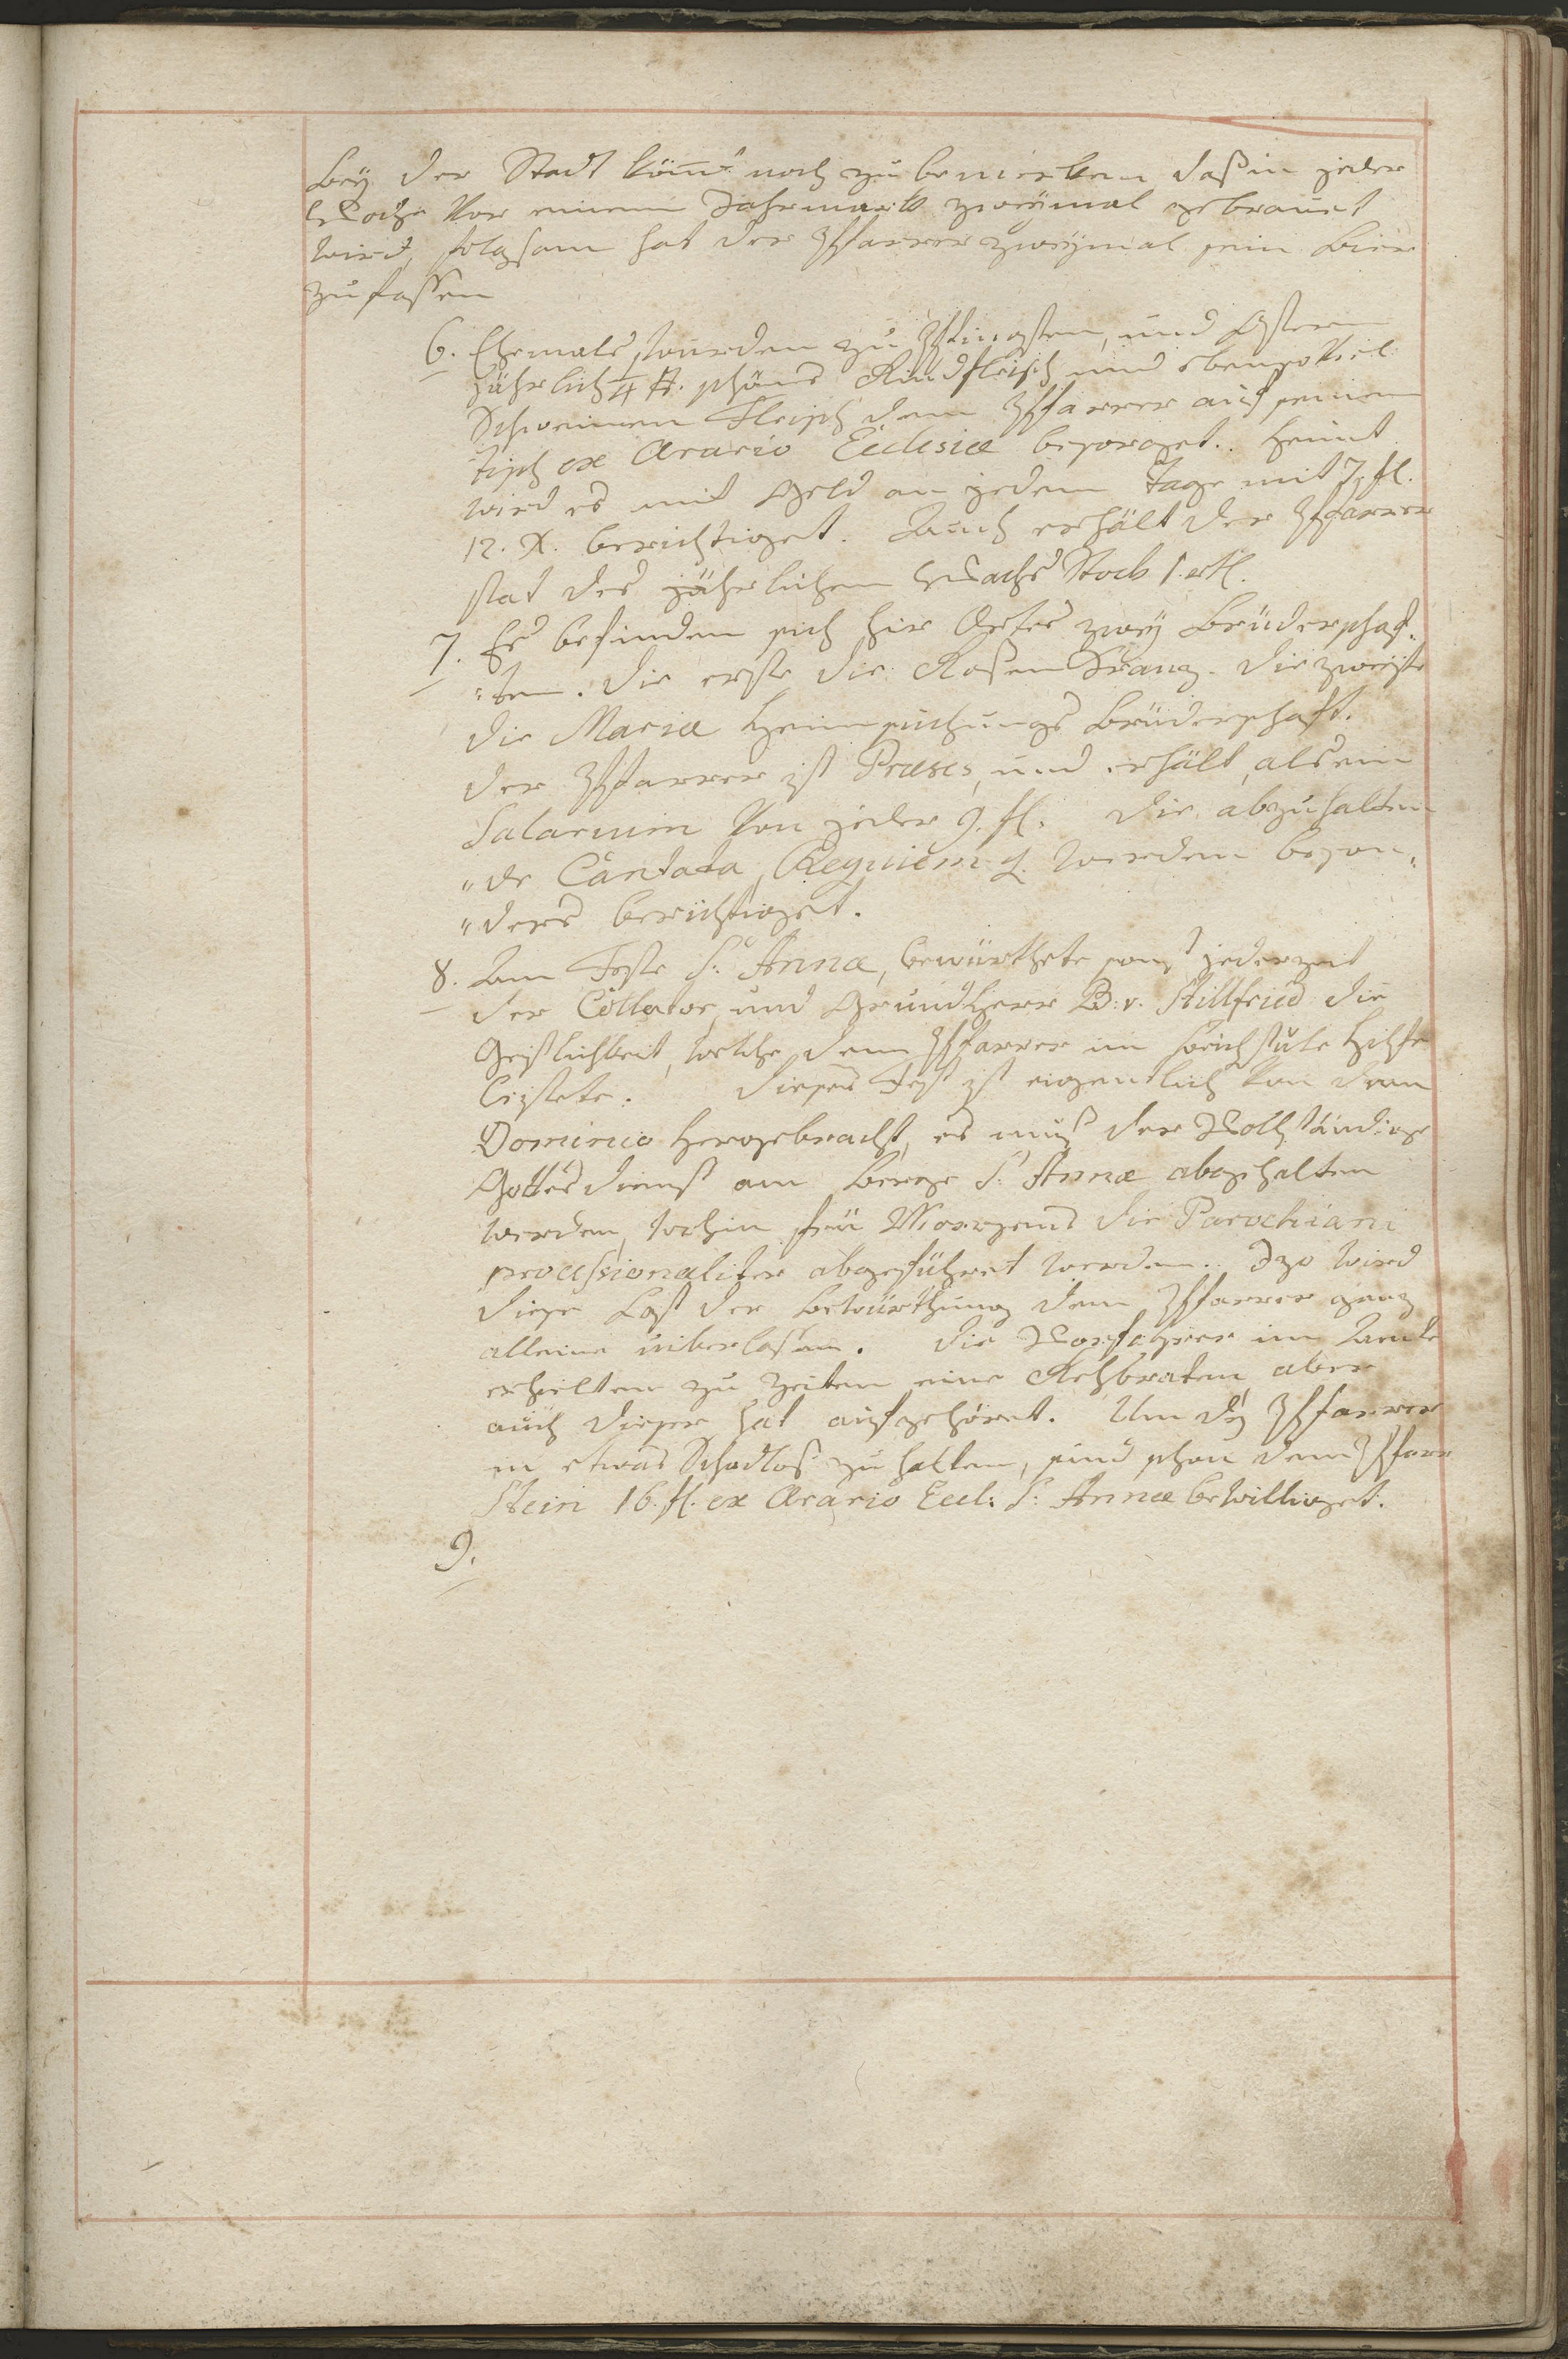 Bey der Stadt kömt noch zu bemerken daß in jeder
Woche vor einem Jahrmark zweymal gebrauet
wird, folgsam hat der Pfarrer zweymal sein Bier
zu fassen
6. Ehemals wurden zu Pfingsten, und Ostern
jährlich ¼ schönes Rindfleisch und ebensoviel
Schweinen Fleisch dem Pfarrer auf seinen
Tisch ex Ærario Ecclesiæ besorget. Heünt
wird es mit Geld an jedem Tage mit 7 fl.
12. X. berichtiget. Auch erhält der Pfarrer
stat des jährlichen Wachs Stock 1. rtl.
7. Es befinden sich hir Ortes zwey Brüderschaf„
„ten. Die erste die Rosen Kranz. Die zweyte
die Mariæ Heimsuchungs Brüderschaft.
Der Pfarrer ist Præses, und erhält, als ein
Salarium von jeder 9. fl. Die abzuhalten
„de Cantata, Requiem werden beson„
„ders berichtiget.
8. Am Feste S: Annæ, bewürthete sonst jederzeit
der Collator, und Grundherr B: v. Stillfried die
Geistlichkeit, welche dem Pfarrer im Beichstule Hilfe
leistete. Dieses Fest ist eigentlich von dem
Dominio hergebracht, es muß der Vollständige
Gottesdienst am Berge S: Annæ abgehalten
werden, wohin frü Morgens die Parochiani
processionaliter abgeführet werden. Izo wird
diese Last der Bewürthung dem Pfarrer ganz
alleine überlassen. Die Vorfahrer im Amte
erhielten zu Zeiten eine Rehbraten aber
auch dieser hat aufgehöret. Um den Pfarrer
in etwas Schadlos zu halten, sind schon dem Pfarr
Stein 16. fl. ex Ærario Eccl: S: Annæ bewilliget.
9.